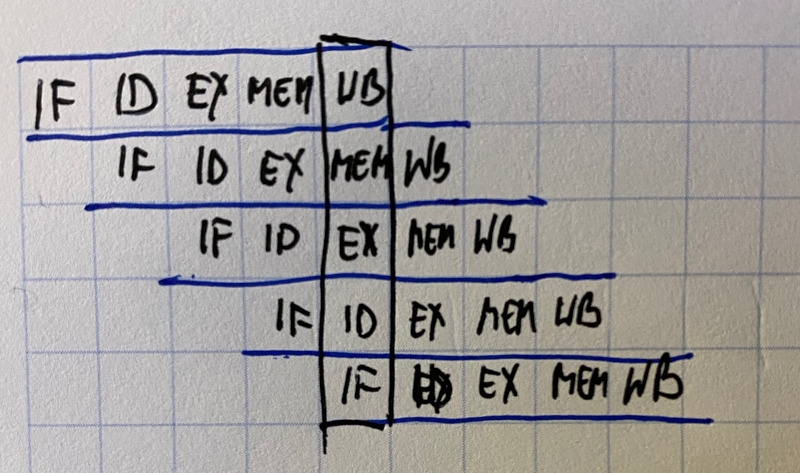 IF ID EX MEM WB
IF ID EX MEM WB
IF ID EX MEM WB
IF ID EX MEM WB
IF ID EX MEM WB